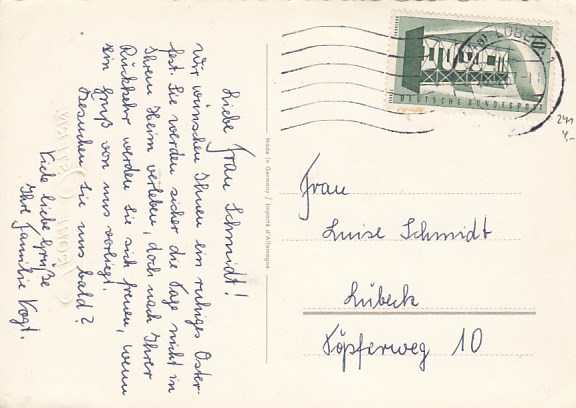 Liebe Frau Schmidt!
Wir wünschen Ihnen ein ruhiges Oster-
fest. Sie werden sicher die Tage nicht in
Ihrem Heim verleben, doch nach Ihrer
Rückkehr werden Sie sich freuen, wenn
ein Gruß von uns vorliegt.
Besuchen Sie uns bald?
Viele liebe Grüße
Ihre Familie Vogt.
Made in Germany / Importé d'Allemagne
10
DEUTSCHE BUNDESPOST
241
4,-
Frau
Luise Schmidt
Lübeck
Töpferweg 10